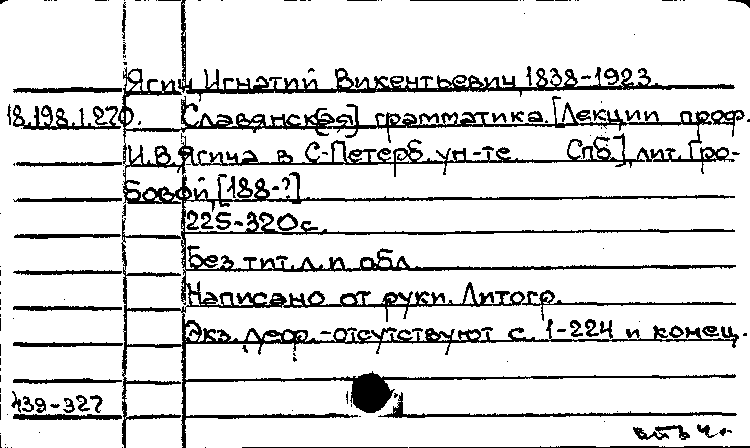 Ягич, Игнатий Викентьевич, 1838-1923.
18.198.1.270. Славянск[ая] грамматика. [Лекции проф.
И.В.Ягича в С-Петерб. ун-те. Спб.], лит. Гро-
бовой, [188-?]
225-320 с.
Без тит. л. и обл.
Написано от руки. Литогр.
Экз. деф. - отсутствуют с. 1-224 и конец.
439-327